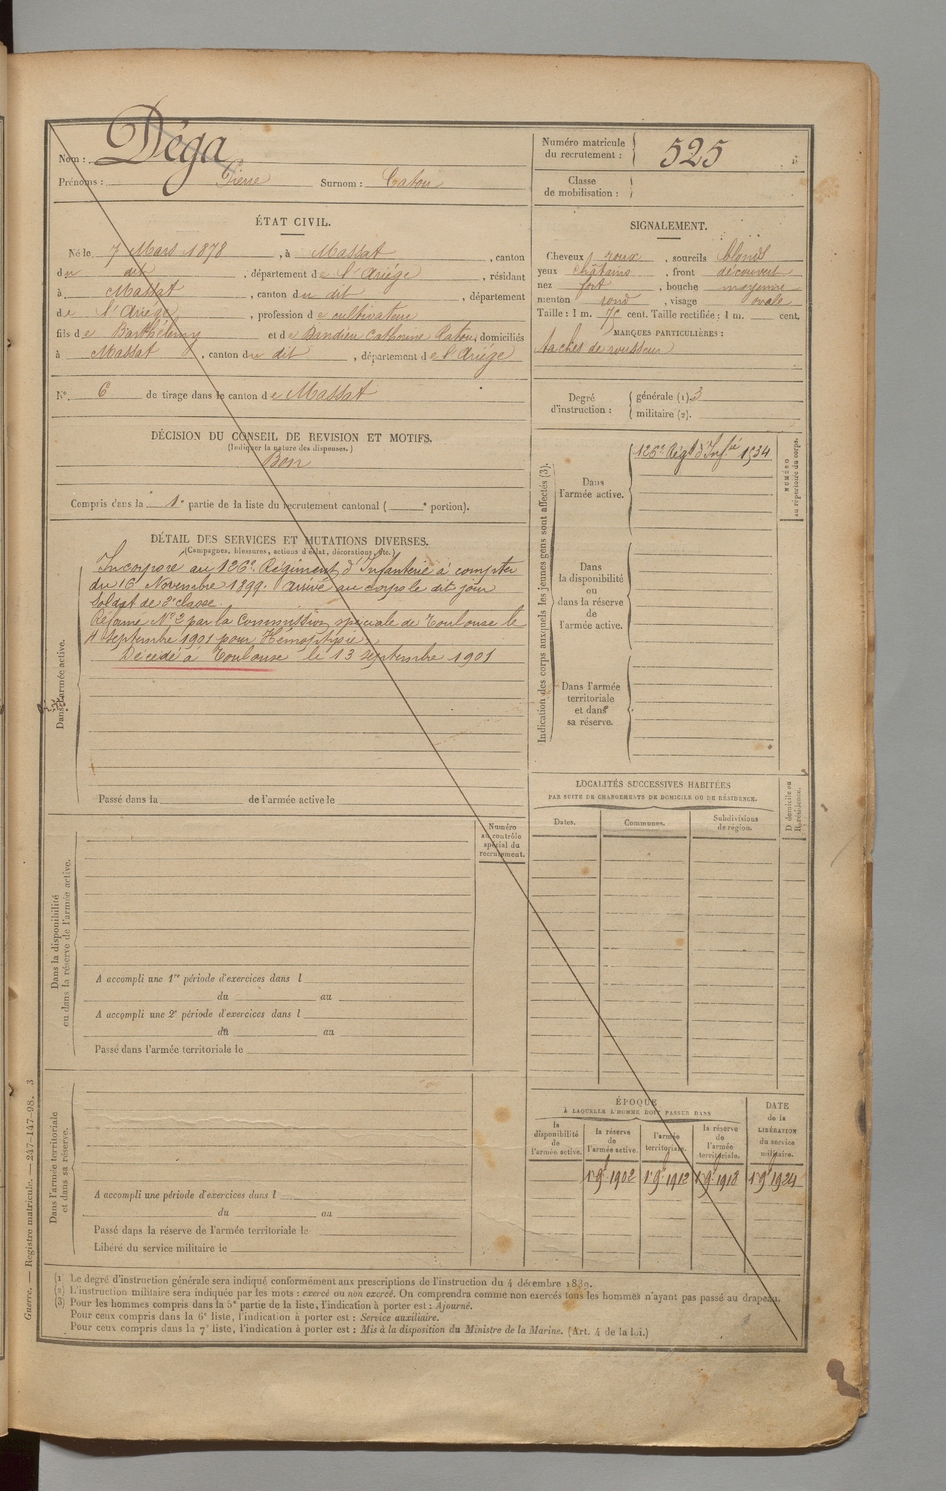 Nom : Déga
Prénoms : Pierre Surnom : Catou
Numéro matricule du recrutement : 525
Classe de mobilisation :
ÉTAT CIVIL.
Né le 7 Mars 1878, à Massat, canton
du dit, département de l'Ariège, résidant
à Massat, canton du dit, département
de l'Ariège, profession de cultivateur
fils de Barthélemy et de Bandieu Catherine Catou, domiciliés
à Massat, canton du dit, département de l'Ariège
N° 6 de tirage dans le canton de Massat
SIGNALEMENT.
Cheveux roux, sourcils blonds
yeux châtains, front découvert
nez fort, bouche moyenne
menton rond, visage ovale
Taille : 1 m. 75 cent. Taille rectifiée : 1 m. cent.
MARQUES PARTICULIÈRES :
taches de rousseur
Degré d'instruction : générale (1). 3
militaire (2).
DÉCISION DU CONSEIL DE REVISION ET MOTIFS.
(Indiquer la nature des dispenses.)
Bon
Compris dans la 1e partie de la liste du recrutement cantonal ( e portion).
DÉTAIL DES SERVICES ET MUTATIONS DIVERSES.
(Campagnes, blessures, actions d'éclat, décorations, etc.)
Dans l'armée active.
Incorporé au 126e Régiment d'Infanterie à compter
du 16 Novembre 1899. Arrivé au corps le dit jour
Soldat de 2e classe.
Réformé N° 2 par la Commission spéciale de Toulouse le
septembre 1901 pour Hémoptysie.
Décédé à Toulouse le 13 septembre 1901
Passé dans la de l'armée active le
Indication des corps auxquels les jeunes gens sont affectés (3).
NUMÉRO au répertoire du corps.
Dans l'armée active.
126e Régt d'Infie 1534
Dans la disponibilité ou dans la réserve de l'armée active.
Dans l'armée territoriale et dans sa réserve.
LOCALITÉS SUCCESSIVES HABITÉES
PAR SUITE DE CHANGEMENTS DE DOMICILE OU DE RÉSIDENCE.
Dates. Communes. Subdivisions de région. D. domicile ou R. résidence.
Numéro au contrôle spécial du recrutement.
Dans la disponibilité ou dans la réserve de l'armée active.
A accompli une 1re période d'exercices dans l
du au
A accompli une 2e période d'exercices dans l
du au
Passé dans l'armée territoriale le
Dans l'armée territoriale et dans sa réserve.
A accompli une période d'exercices dans l
du au
Passé dans la réserve de l'armée territoriale le
Libéré du service militaire le
ÉPOQUE
À LAQUELLE L'HOMME DOIT PASSER DANS
la disponibilité de l'armée active. la réserve de l'armée active. l'armée territoriale. la réserve de l'armée territoriale. DATE de la LIBÉRATION du service militaire.
1er 9bre 1902 1er 9bre 1912 1er 9bre 1918 1er 9bre 1924
(1) Le degré d'instruction générale sera indiqué conformément aux prescriptions de l'instruction du 4 décembre 1889.
(2) L'instruction militaire sera indiquée par les mots : exercé ou non exercé. On comprendra comme non exercés tous les hommes n'ayant pas passé au drapeau.
(3) Pour les hommes compris dans la 5e partie de la liste, l'indication à porter est : Ajourné.
Pour ceux compris dans la 6e liste, l'indication à porter est : Service auxiliaire.
Pour ceux compris dans la 7e liste, l'indication à porter est : Mis à la disposition du Ministre de la Marine. (Art. 4 de la loi.)
Guerre. — Registre matricule. — 247-147-98. 3